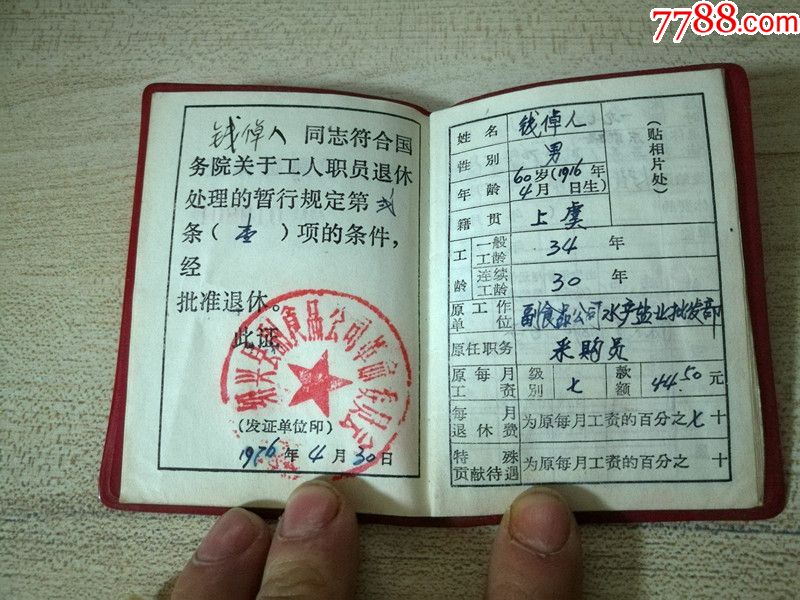 7788.com
钱倬人 同志符合国
务院关于工人职员退休
处理的暂行规定第 贰
条（壹）项的条件，
经
批准退休。
此证
嵊兴县副食品公司革命委员会
（发证单位印）
1976年4月30日
姓名 钱倬人
性别 男
年龄 60岁（1916年4月 日生）
籍贯 上虞
工龄 一般工龄 34 年
连续工龄 30 年
原工作单位 副食品公司水产盐业批发部
原任职务 采购员
原每月工资 级别 七 款额 44.50元
每月退休费 为原每月工资的百分之七十
特殊贡献待遇 为原每月工资的百分之 十
（贴相片处）